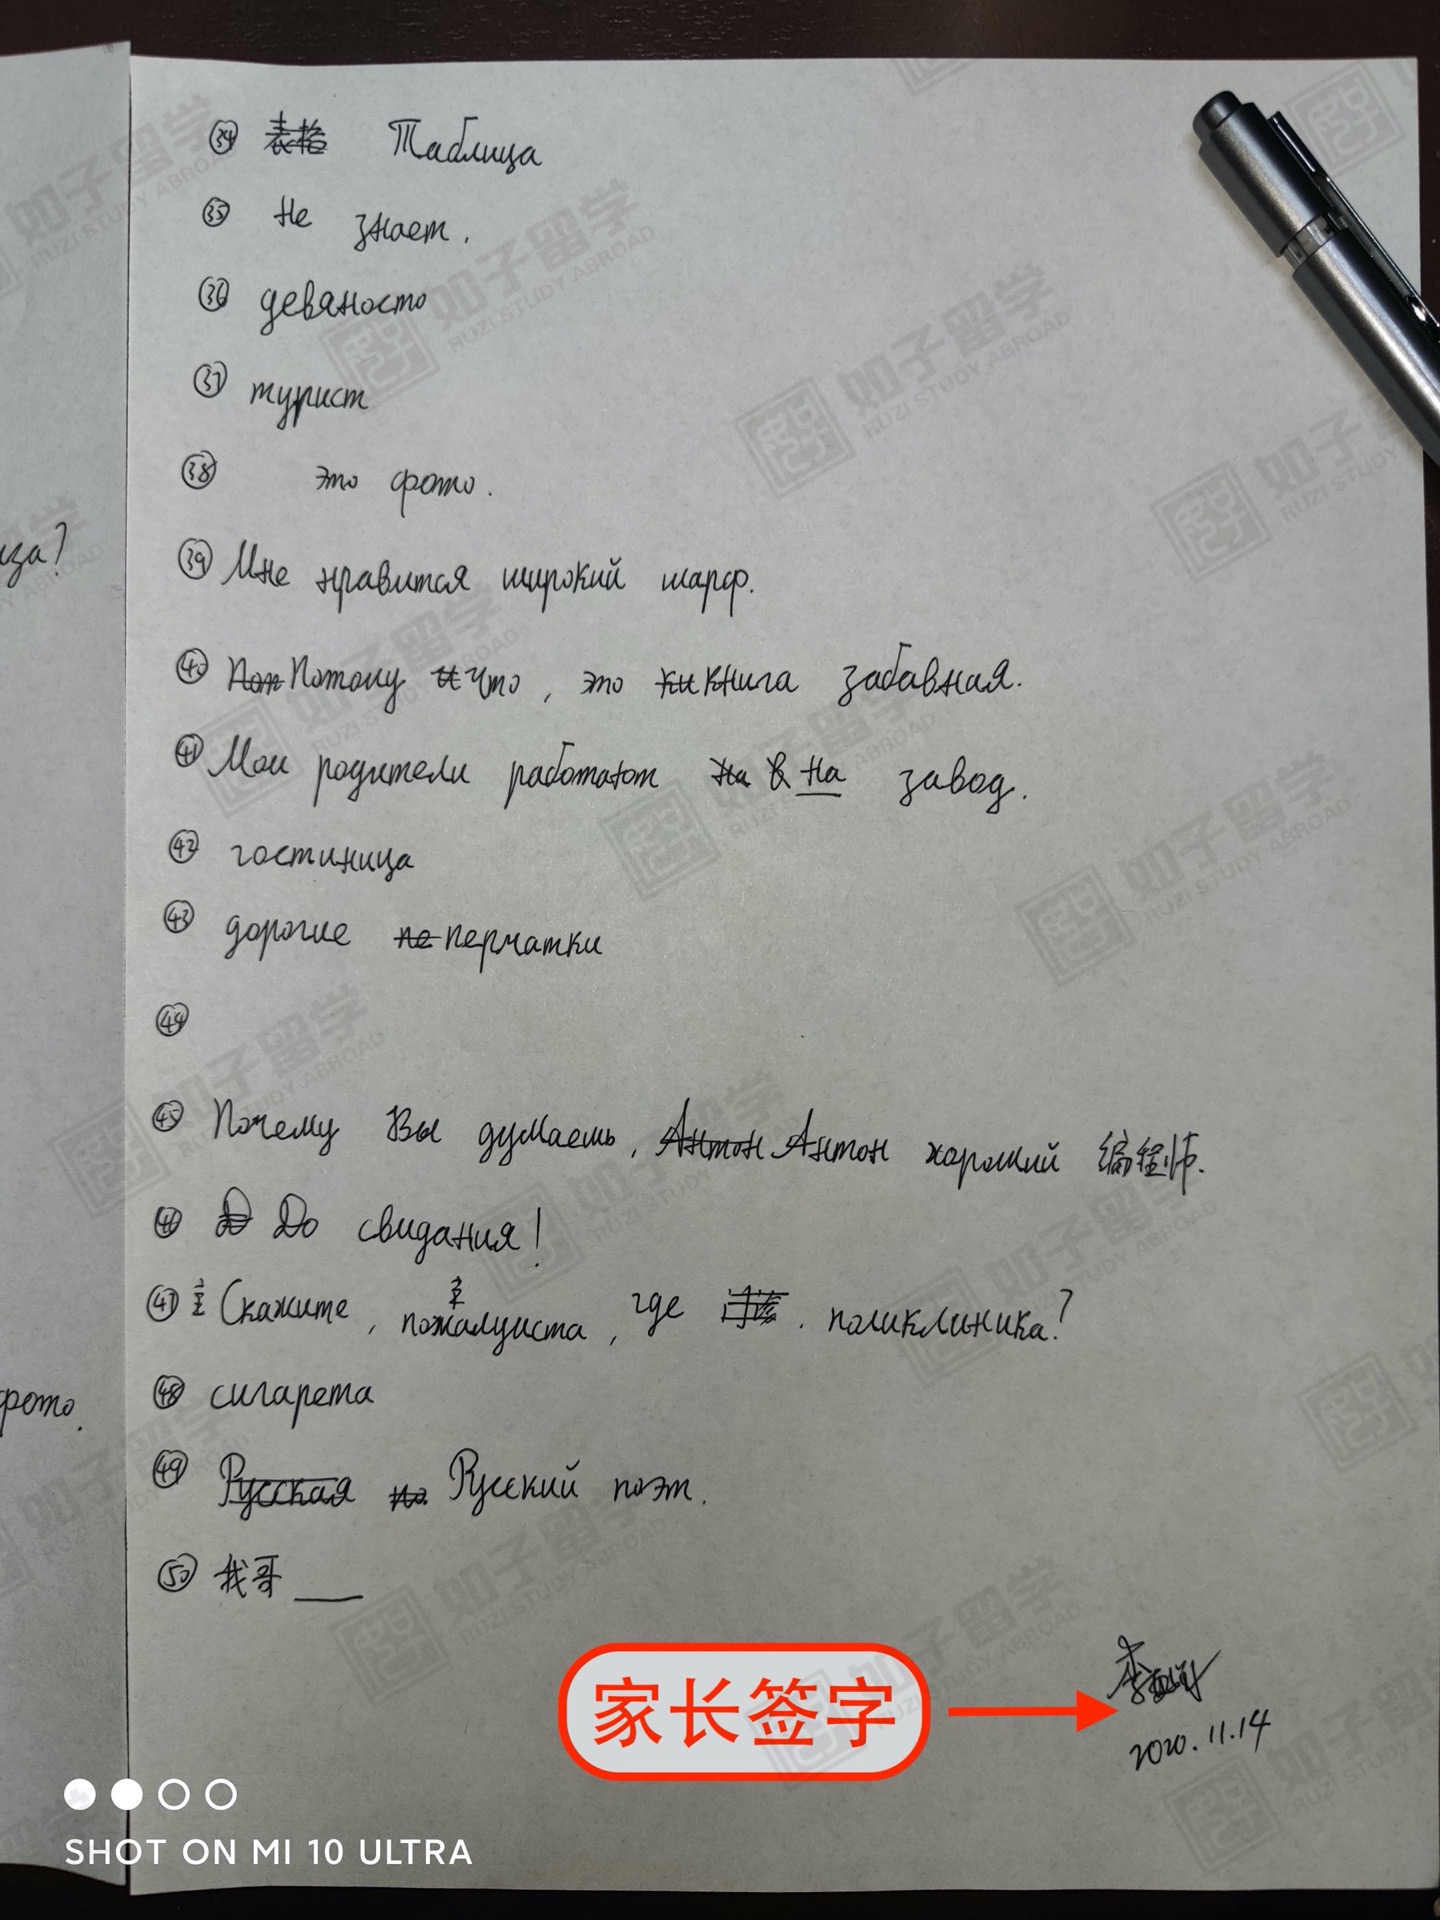 иза?
фото.
㉞ 表格 Таблица
㉟ Не знает.
㊱ девяносто
㊲ турист
㊳ это фото.
㊴ Мне нравится широкий шарф.
㊵ Поп Потому и что, это ки книга забавная.
㊶ Мои родители работают на в на завод.
㊷ гостиница
㊸ дорогие пе перчатки
㊹
㊺ Почему Вы думаешь, Антон Антон хороший 编程师.
㊻ D До свидания!
㊼ 主 Скажите, пожалуиста, где. поликлиника?
㊽ сигарета
㊾ Русская по Русский поэт.
㊿ 我哥 ___
家长签字
2020.11.14
SHOT ON MI 10 ULTRA
如子留学
RUZI STUDY ABROAD